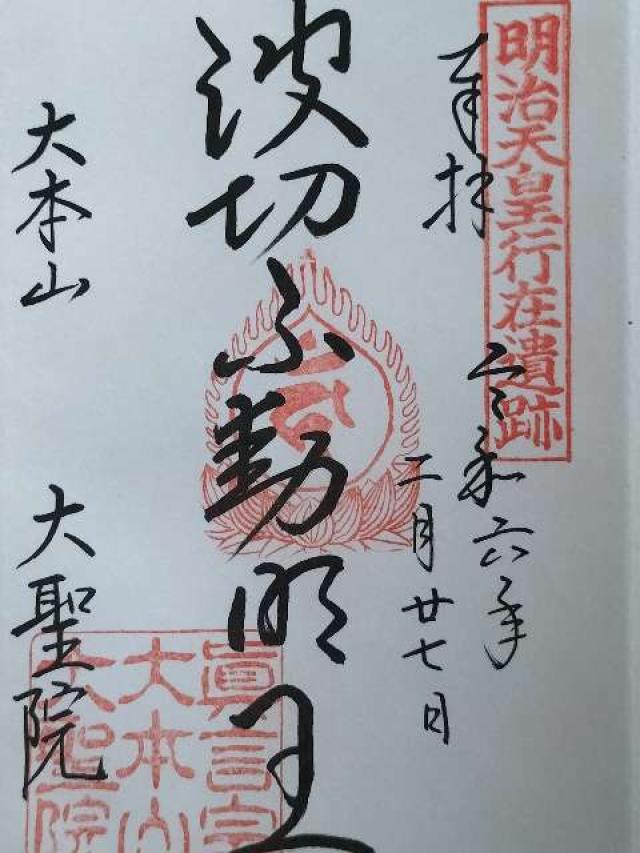 明治天皇行在遺跡
奉拝
令和六年
二月廿七日
波切不動明王
大本山 大聖院
眞言宗
大本山
大聖院